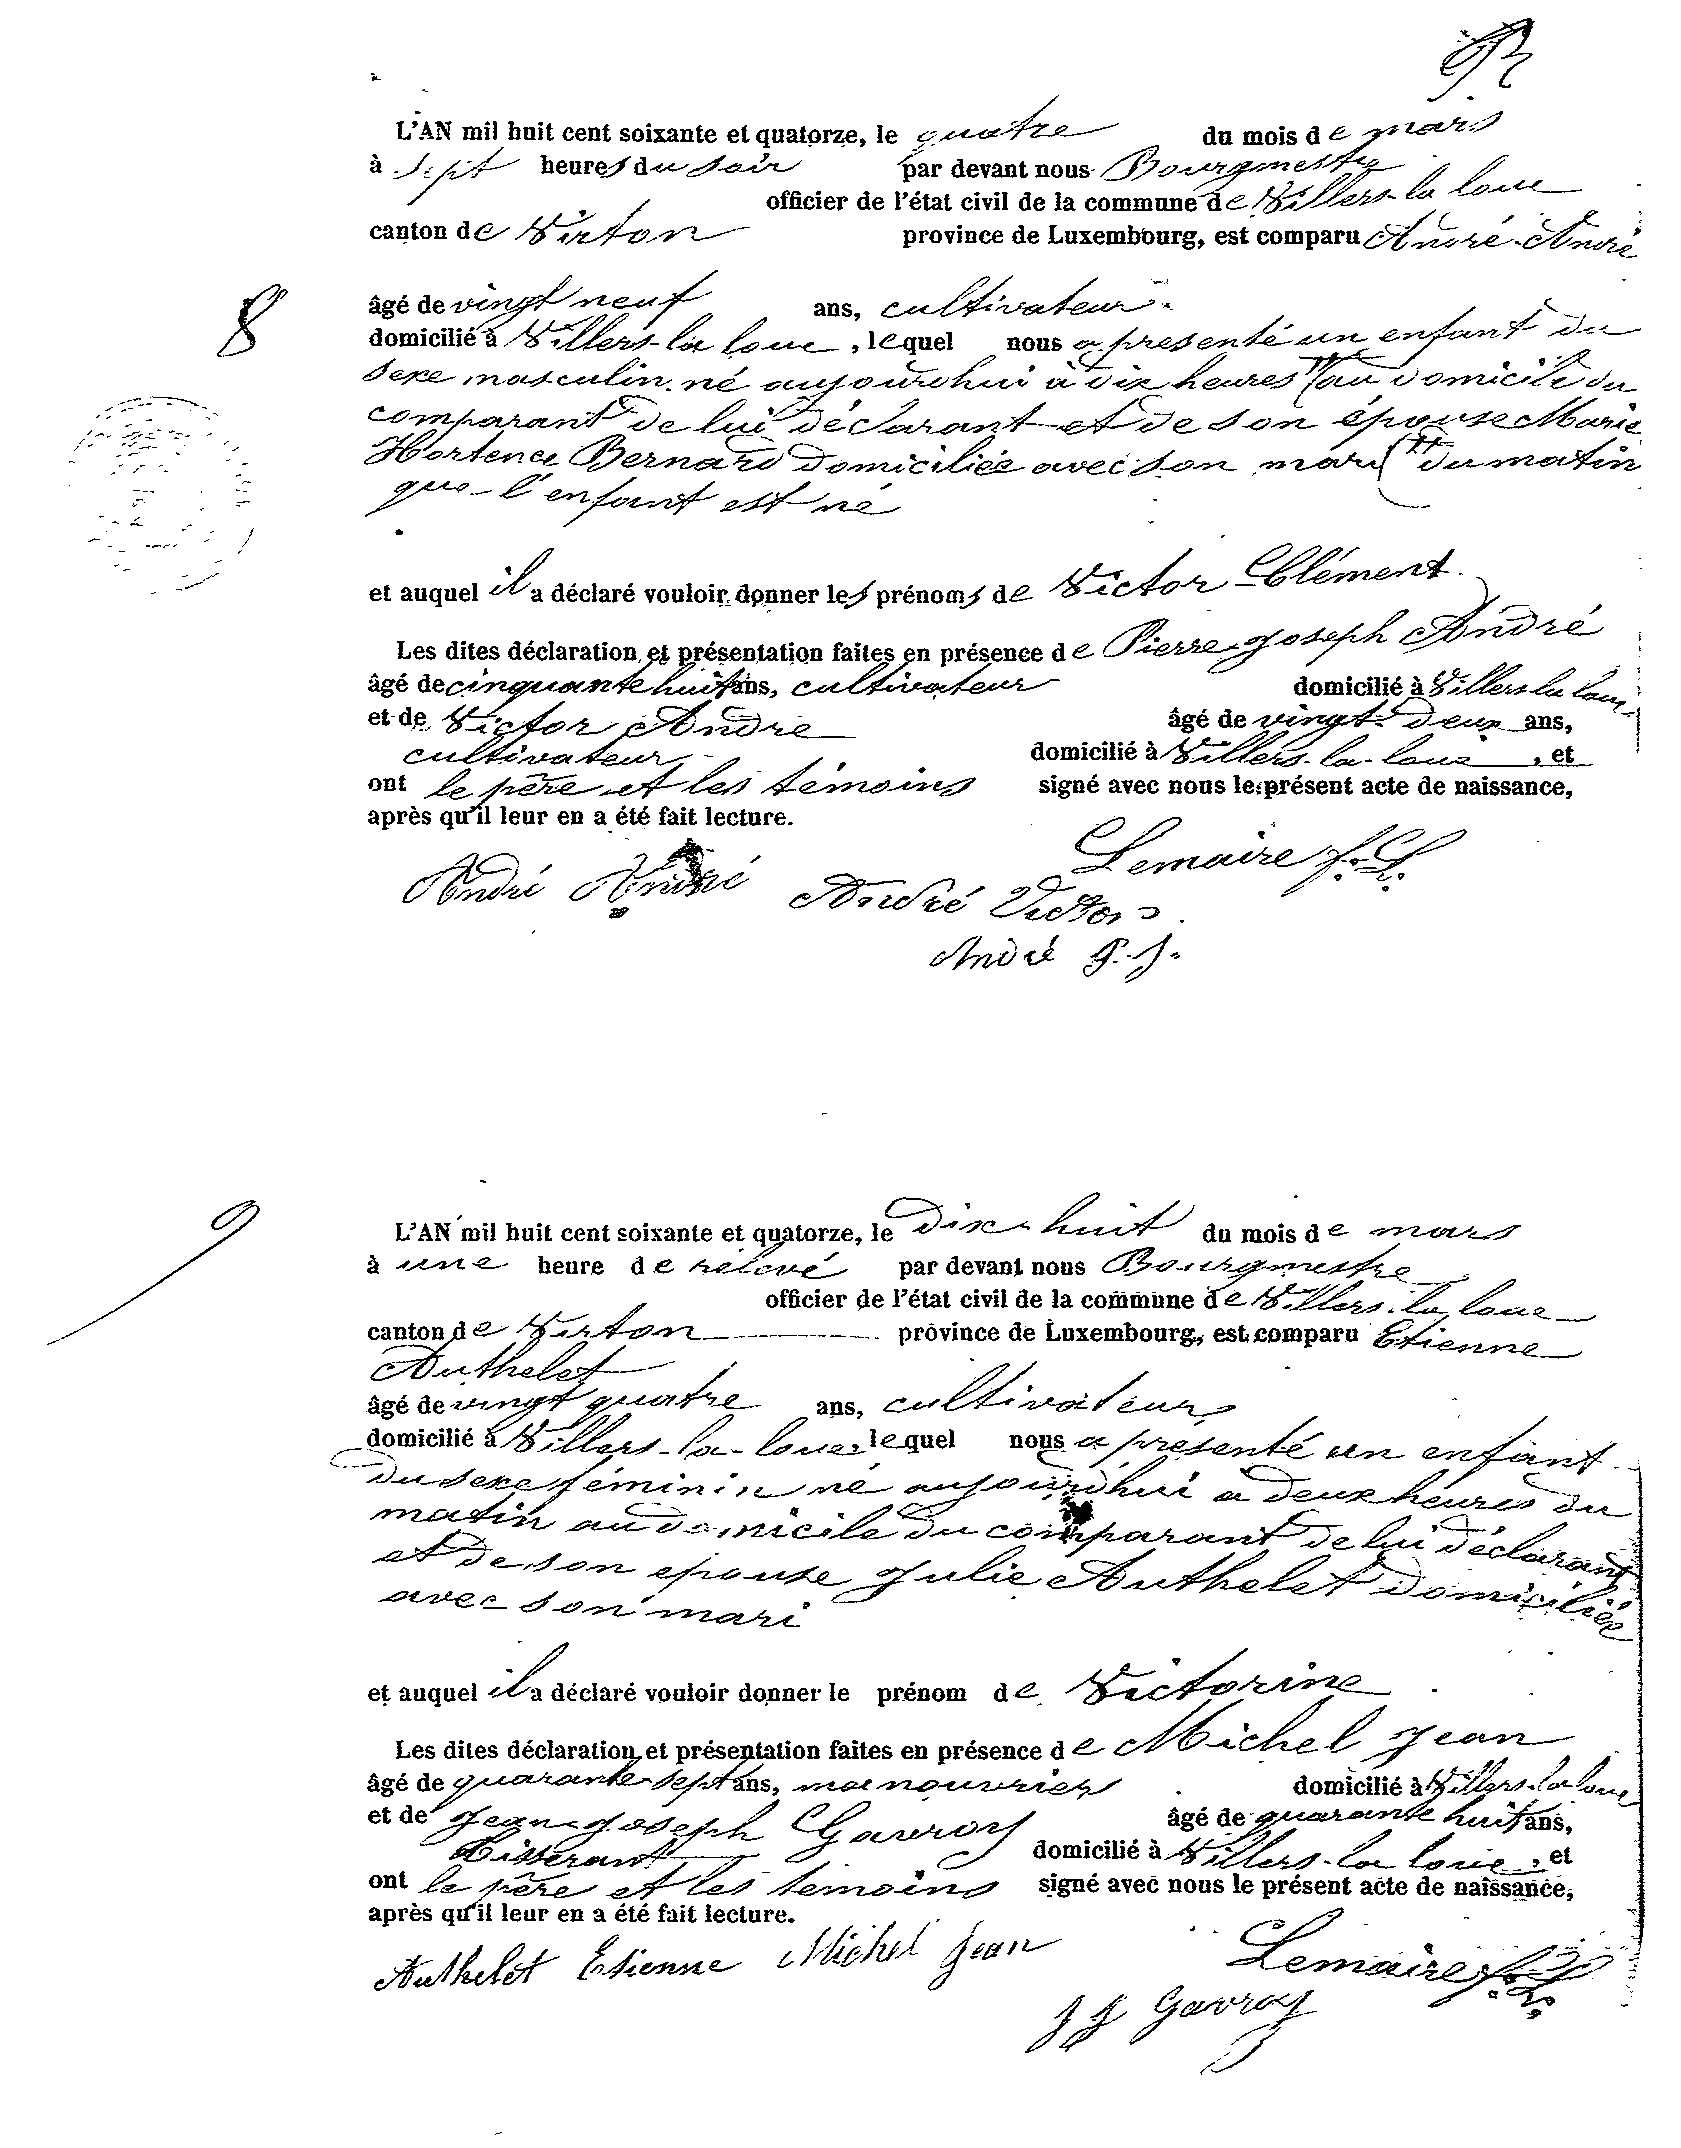 L'AN mil huit cent soixante et quatorze, le quatre du mois de mars
à sept heures du soir par devant nous Bourgmestre
officier de l'état civil de la commune de Villers-la loue
canton de Virton province de Luxembourg, est comparu André André
8
âgé de vingt neuf ans, cultivateur
domicilié à Villers la loue, lequel nous a presenté un enfant du
sexe masculin né aujourdhui à dix heures (au domicile du
comparant de lui déclarant et de son épouse Marie
Hortence Bernard domiciliée avec son mari ( du matin
que l'enfant est né
et auquel il a déclaré vouloir donner les prénoms de Victor Clément
Les dites déclaration et présentation faites en présence de Pierre Joseph André
âgé de cinquante huit ans, cultivateur domicilié à Villers la loue
et de Victor André âgé de vingt deux ans,
cultivateur domicilié à Villers-la-loue, et
ont le père et les témoins signé avec nous le présent acte de naissance,
après qu'il leur en a été fait lecture.
Lemaire f.L.
André André André Victor
André P.J.
9
L'AN mil huit cent soixante et quatorze, le dix-huit du mois de mars
à une heure de relevé par devant nous Bourgmestre
officier de l'état civil de la commune de Villers-la loue
canton de Virton province de Luxembourg, est comparu Etienne
Authelet
âgé de vingt quatre ans, cultivateur
domicilié à Villers-la-loue lequel nous a presenté un enfant
du sexe féminin né aujourdhui à deux heures du
matin au domicile du comparant de lui déclarant
et de son epouse Julie Authelet domiciliée
avec son mari
et auquel il a déclaré vouloir donner le prénom de Victorine
Les dites déclaration et présentation faites en présence de Michel Jean
âgé de quarante-sept ans, manouvrier domicilié à Villers-la loue
et de Jean-Joseph Gavroy âgé de quarante huit ans,
tisserant domicilié à Villers-la loue, et
ont le père et les témoins signé avec nous le présent acte de naissance,
après qu'il leur en a été fait lecture.
Authelet Etienne Michel Jean Lemaire f.L.
J J Gavroy